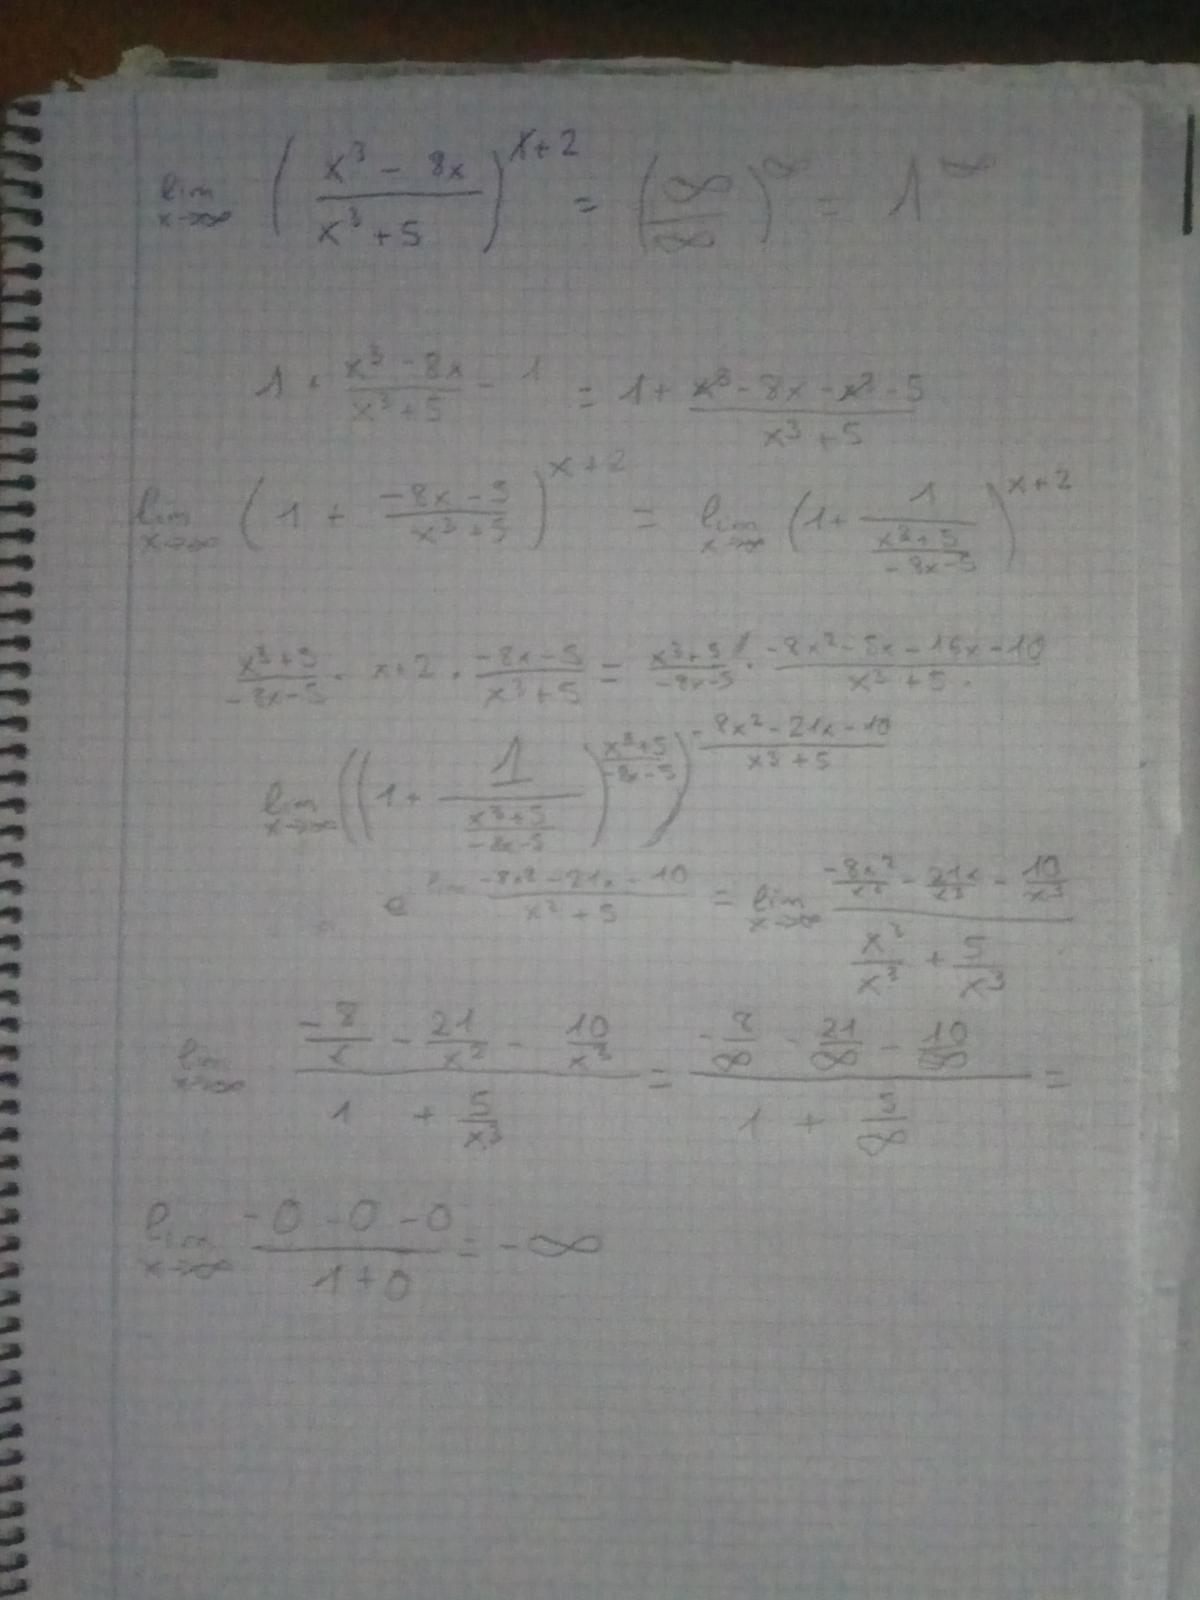 lim x→∞ ( (x³ - 8x) / (x³ + 5) )^(x+2) = (∞/∞)^∞ = 1^∞
1 + (x³ - 8x)/(x³ + 5) - 1 = 1 + (x³ - 8x - x³ - 5)/(x³ + 5)
lim x→∞ ( 1 + (-8x - 5)/(x³ + 5) )^(x+2) = lim x→∞ ( 1 + 1/((x³ + 5)/(-8x - 5)) )^(x+2)
(x³+5)/(-8x-5) · x+2 · (-8x-5)/(x³+5) = (x³+5)/(-8x-5) · (-8x² - 5x - 16x - 10)/(x³ + 5)
lim x→∞ ( ( 1 + 1/((x³+5)/(-8x-5)) )^((x³+5)/(-8x-5)) )^((-8x² - 21x - 10)/(x³ + 5))
= e^(lim (-8x² - 21x - 10)/(x³ + 5)) = lim x→∞ (-8x²/x³ - 21x/x³ - 10/x³) / (x³/x³ + 5/x³)
lim x→∞ (-8/x - 21/x² - 10/x³) / (1 + 5/x³) = (-8/∞ - 21/∞ - 10/∞) / (1 + 5/∞) =
lim x→∞ (-0 - 0 - 0) / (1 + 0) = -∞